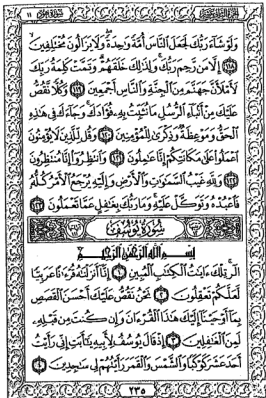 سُورَةُ هُودٍ ١١
وَلَوْ شَآءَ رَبُّكَ لَجَعَلَ ٱلنَّاسَ أُمَّةً وَٰحِدَةً وَلَا يَزَالُونَ مُخْتَلِفِينَ
١١٨ إِلَّا مَن رَّحِمَ رَبُّكَ وَلِذَٰلِكَ خَلَقَهُمْ وَتَمَّتْ كَلِمَةُ رَبِّكَ
لَأَمْلَأَنَّ جَهَنَّمَ مِنَ ٱلْجِنَّةِ وَٱلنَّاسِ أَجْمَعِينَ ١١٩ وَكُلًّا نَّقُصُّ
عَلَيْكَ مِنْ أَنۢبَآءِ ٱلرُّسُلِ مَا نُثَبِّتُ بِهِۦ فُؤَادَكَ وَجَآءَكَ فِى هَٰذِهِ
ٱلْحَقُّ وَمَوْعِظَةٌ وَذِكْرَىٰ لِلْمُؤْمِنِينَ ١٢٠ وَقُل لِّلَّذِينَ لَا يُؤْمِنُونَ
ٱعْمَلُوا۟ عَلَىٰ مَكَانَتِكُمْ إِنَّا عَٰمِلُونَ ١٢١ وَٱنتَظِرُوٓا۟ إِنَّا مُنتَظِرُونَ
١٢٢ وَلِلَّهِ غَيْبُ ٱلسَّمَٰوَٰتِ وَٱلْأَرْضِ وَإِلَيْهِ يُرْجَعُ ٱلْأَمْرُ كُلُّهُۥ
فَٱعْبُدْهُ وَتَوَكَّلْ عَلَيْهِ وَمَا رَبُّكَ بِغَٰفِلٍ عَمَّا تَعْمَلُونَ ١٢٣
سُورَةُ يُوسُفَ
بِسْمِ ٱللَّهِ ٱلرَّحْمَٰنِ ٱلرَّحِيمِ
الٓر تِلْكَ ءَايَٰتُ ٱلْكِتَٰبِ ٱلْمُبِينِ ١ إِنَّآ أَنزَلْنَٰهُ قُرْءَٰنًا عَرَبِيًّا
لَّعَلَّكُمْ تَعْقِلُونَ ٢ نَحْنُ نَقُصُّ عَلَيْكَ أَحْسَنَ ٱلْقَصَصِ
بِمَآ أَوْحَيْنَآ إِلَيْكَ هَٰذَا ٱلْقُرْءَانَ وَإِن كُنتَ مِن قَبْلِهِۦ
لَمِنَ ٱلْغَٰفِلِينَ ٣ إِذْ قَالَ يُوسُفُ لِأَبِيهِ يَٰٓأَبَتِ إِنِّى رَأَيْتُ
أَحَدَ عَشَرَ كَوْكَبًا وَٱلشَّمْسَ وَٱلْقَمَرَ رَأَيْتُهُمْ لِى سَٰجِدِينَ ٤
٢٣٥